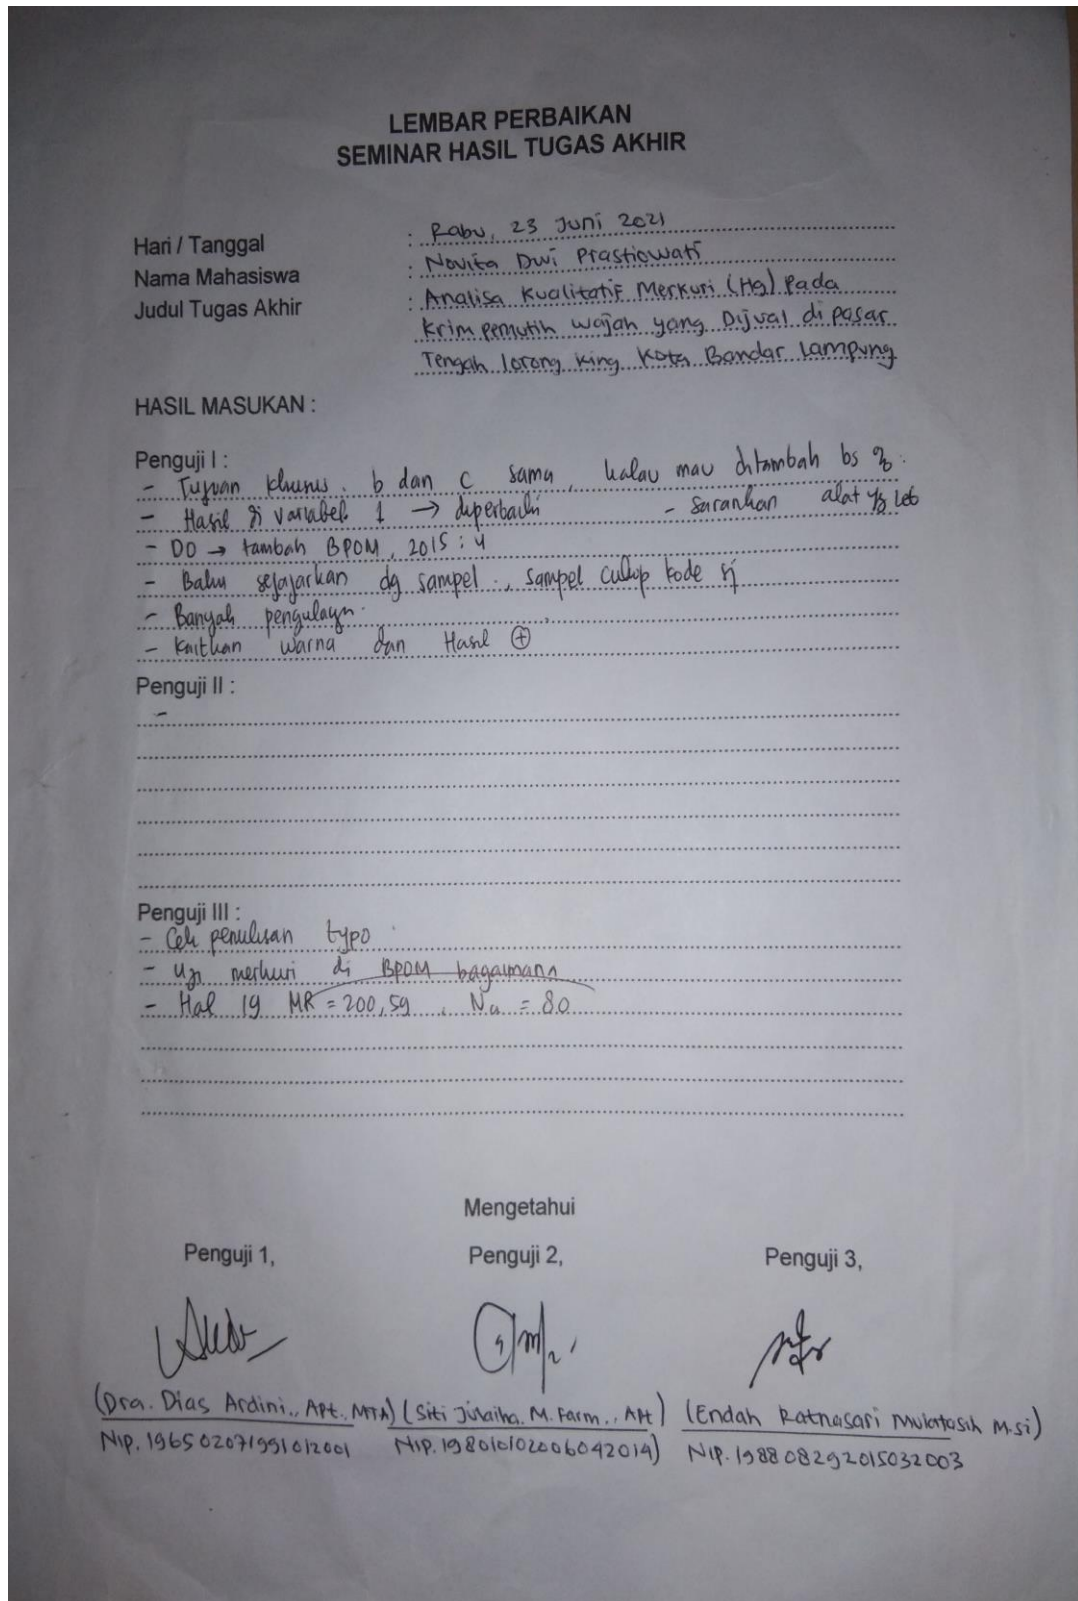 LEMBAR PERBAIKAN
SEMINAR HASIL TUGAS AKHIR
Hari / Tanggal : Rabu, 23 Juni 2021
Nama Mahasiswa : Novita Dwi Prastiowati
Judul Tugas Akhir : Analisa Kualitatif Merkuri (Hg) Pada
Krim pemutih wajah yang Dijual di pasar
Tengah lorong king Kota Bandar Lampung
HASIL MASUKAN :
Penguji I :
- Tujuan khusus. b dan c sama, kalau mau ditambah bs
- Hasil variabel 1 → diperbaiki - sarankan alat
- DO → tambah BPOM, 2015 : 4
- Baku sejajarkan dg sampel., sampel cukup kode sj
- Banyak
- Kaitkan warna dan Hasil ⊕
Penguji II :
-
Penguji III :
- Cek penulisan typo
- Uji merkuri di BPOM bagaimana
- Hal 19 MR = 200,59 , Na = 80
Mengetahui
Penguji 1, Penguji 2, Penguji 3,
(Dra. Dias Ardini., Apt., MTA) (Siti Julaiha. M. Farm., Apt) (Endah Ratnasari Mulatasih M.si)
NIP. 196502071991012001 NIP. 198010102006042014) NIP. 198808292015032003